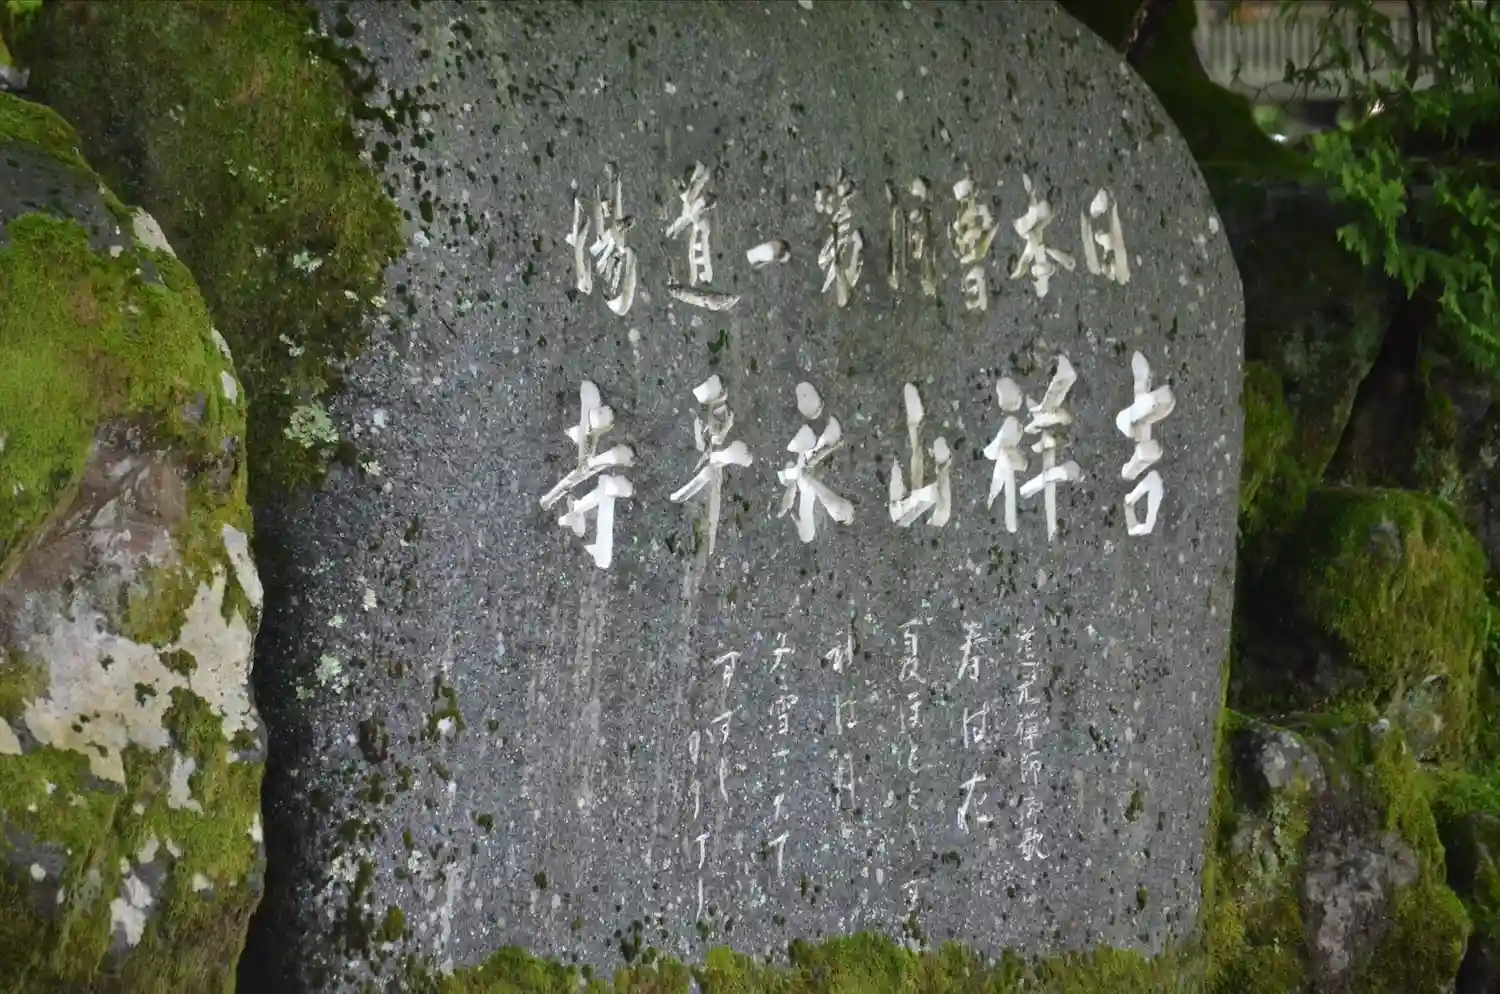 日本曹洞第一道場
吉祥山永平寺
道元禅師御歌
春は花
夏ほととぎす
秋は月
冬雪
すずし